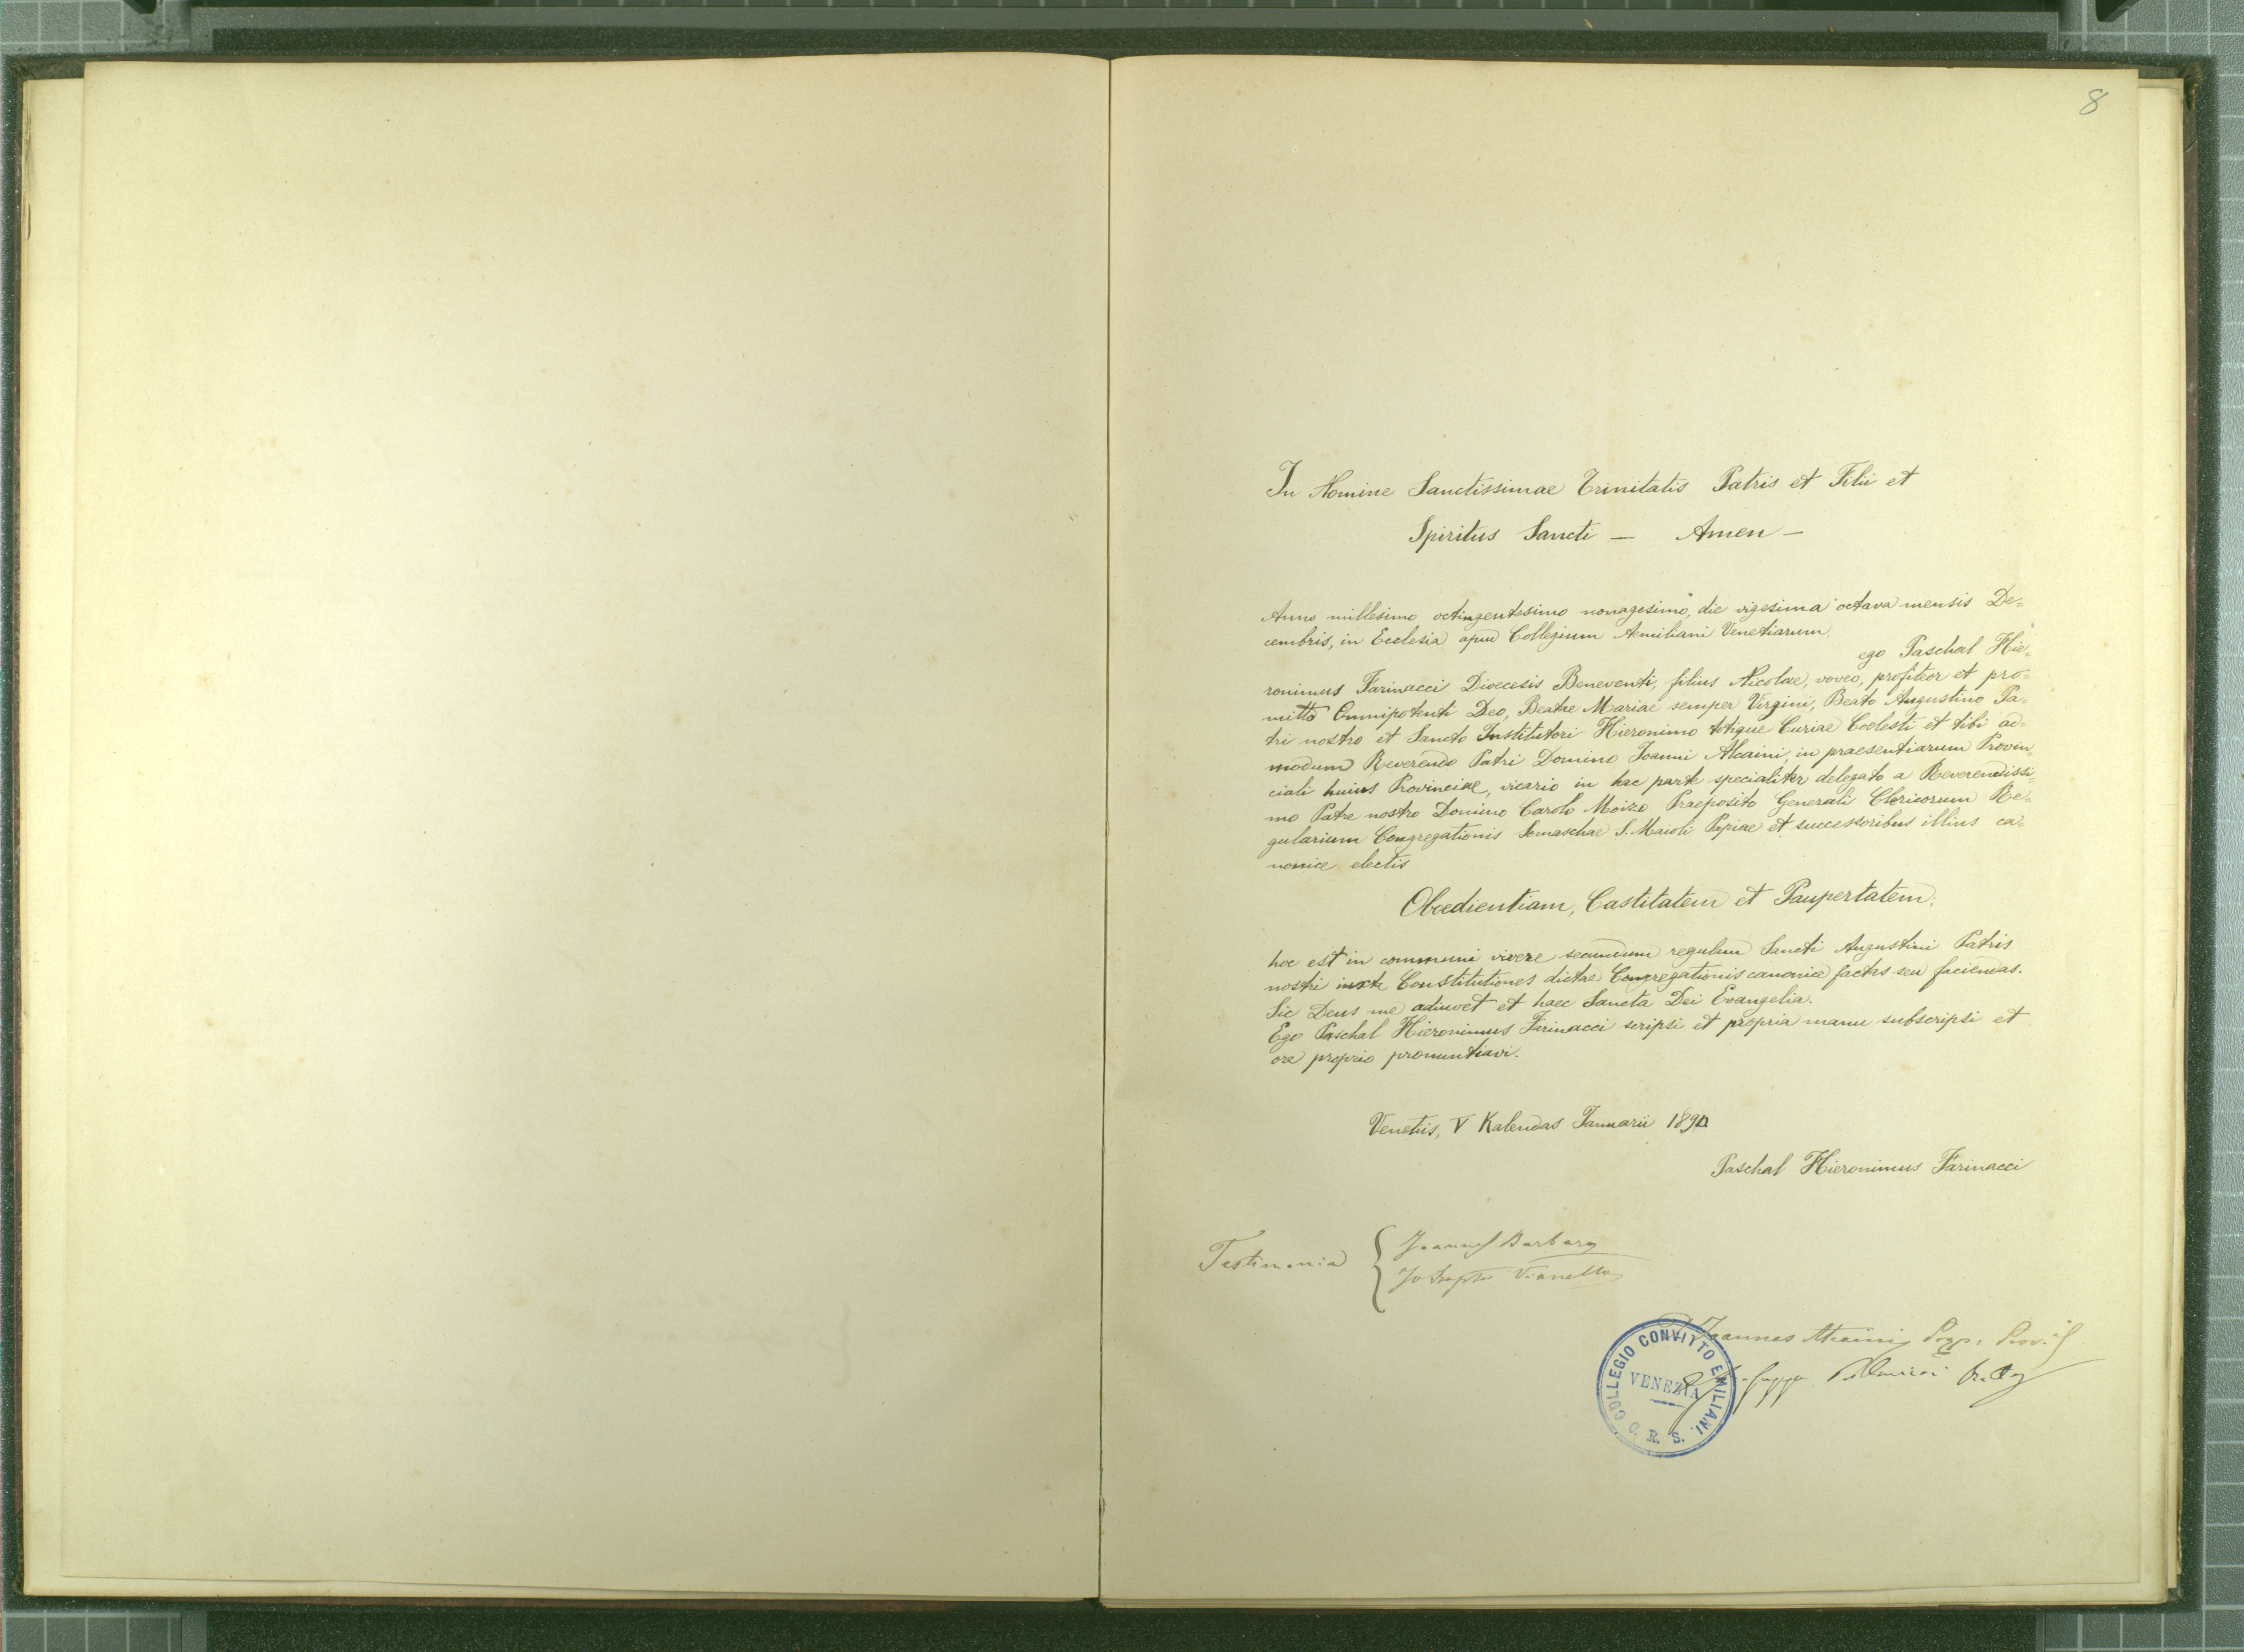 8
In Nomine Sanctissimae Trinitatis Patris et Filii et
Spiritus Sancti — Amen —
Anno millesimo octingentesimo nonagesimo, die vigesima octava mensis De=
cembris, in Ecclesia apud Collegium Aemiliani Venetiarum
ego Paschal Hie=
ronimus Farinacci Dioecesis Beneventi, filius Nicolae, voveo, profiteor et pro=
mitto Omnipotenti Deo, Beatae Mariae semper Virgini, Beato Augustino Pa=
tri nostro et Sancto Institutori Hieronimo totique Curiae Coelesti et tibi ad=
modum Reverendo Patri Domino Joanni Alcaini, in praesentiarum Provin=
ciali huius Provinciae, vicario in hac parte specialiter delegato a Reverendissi=
mo Patre nostro Domino Carolo Moizo Praeposito Generali Clericorum Re=
gularium Congregationis Somaschae S. Maioli Papiae et successoribus illius ca=
nonice electis
Oboedientiam, Castitatem et Paupertatem;
hoc est in communi vivere secundum regulam Sancti Augustini Patris
nostri iuxta Constitutiones dictae Congregationis canonice factas seu faciendas.
Sic Deus me adiuvet et haec Sancta Dei Evangelia.
Ego Paschal Hieronimus Farinacci scripsi et propria manu subscripsi et
ore proprio pronuntiavi.
Venetiis, V Kalendas Januarii 1890
Paschal Hieronimus Farinacci
Testimonia { Joannes Barbaro
Vianello
Joannes Alcaini Prep: Prov.il
COLLEGIO CONVITTO EMILIANI
VENEZIA
C. R. S.